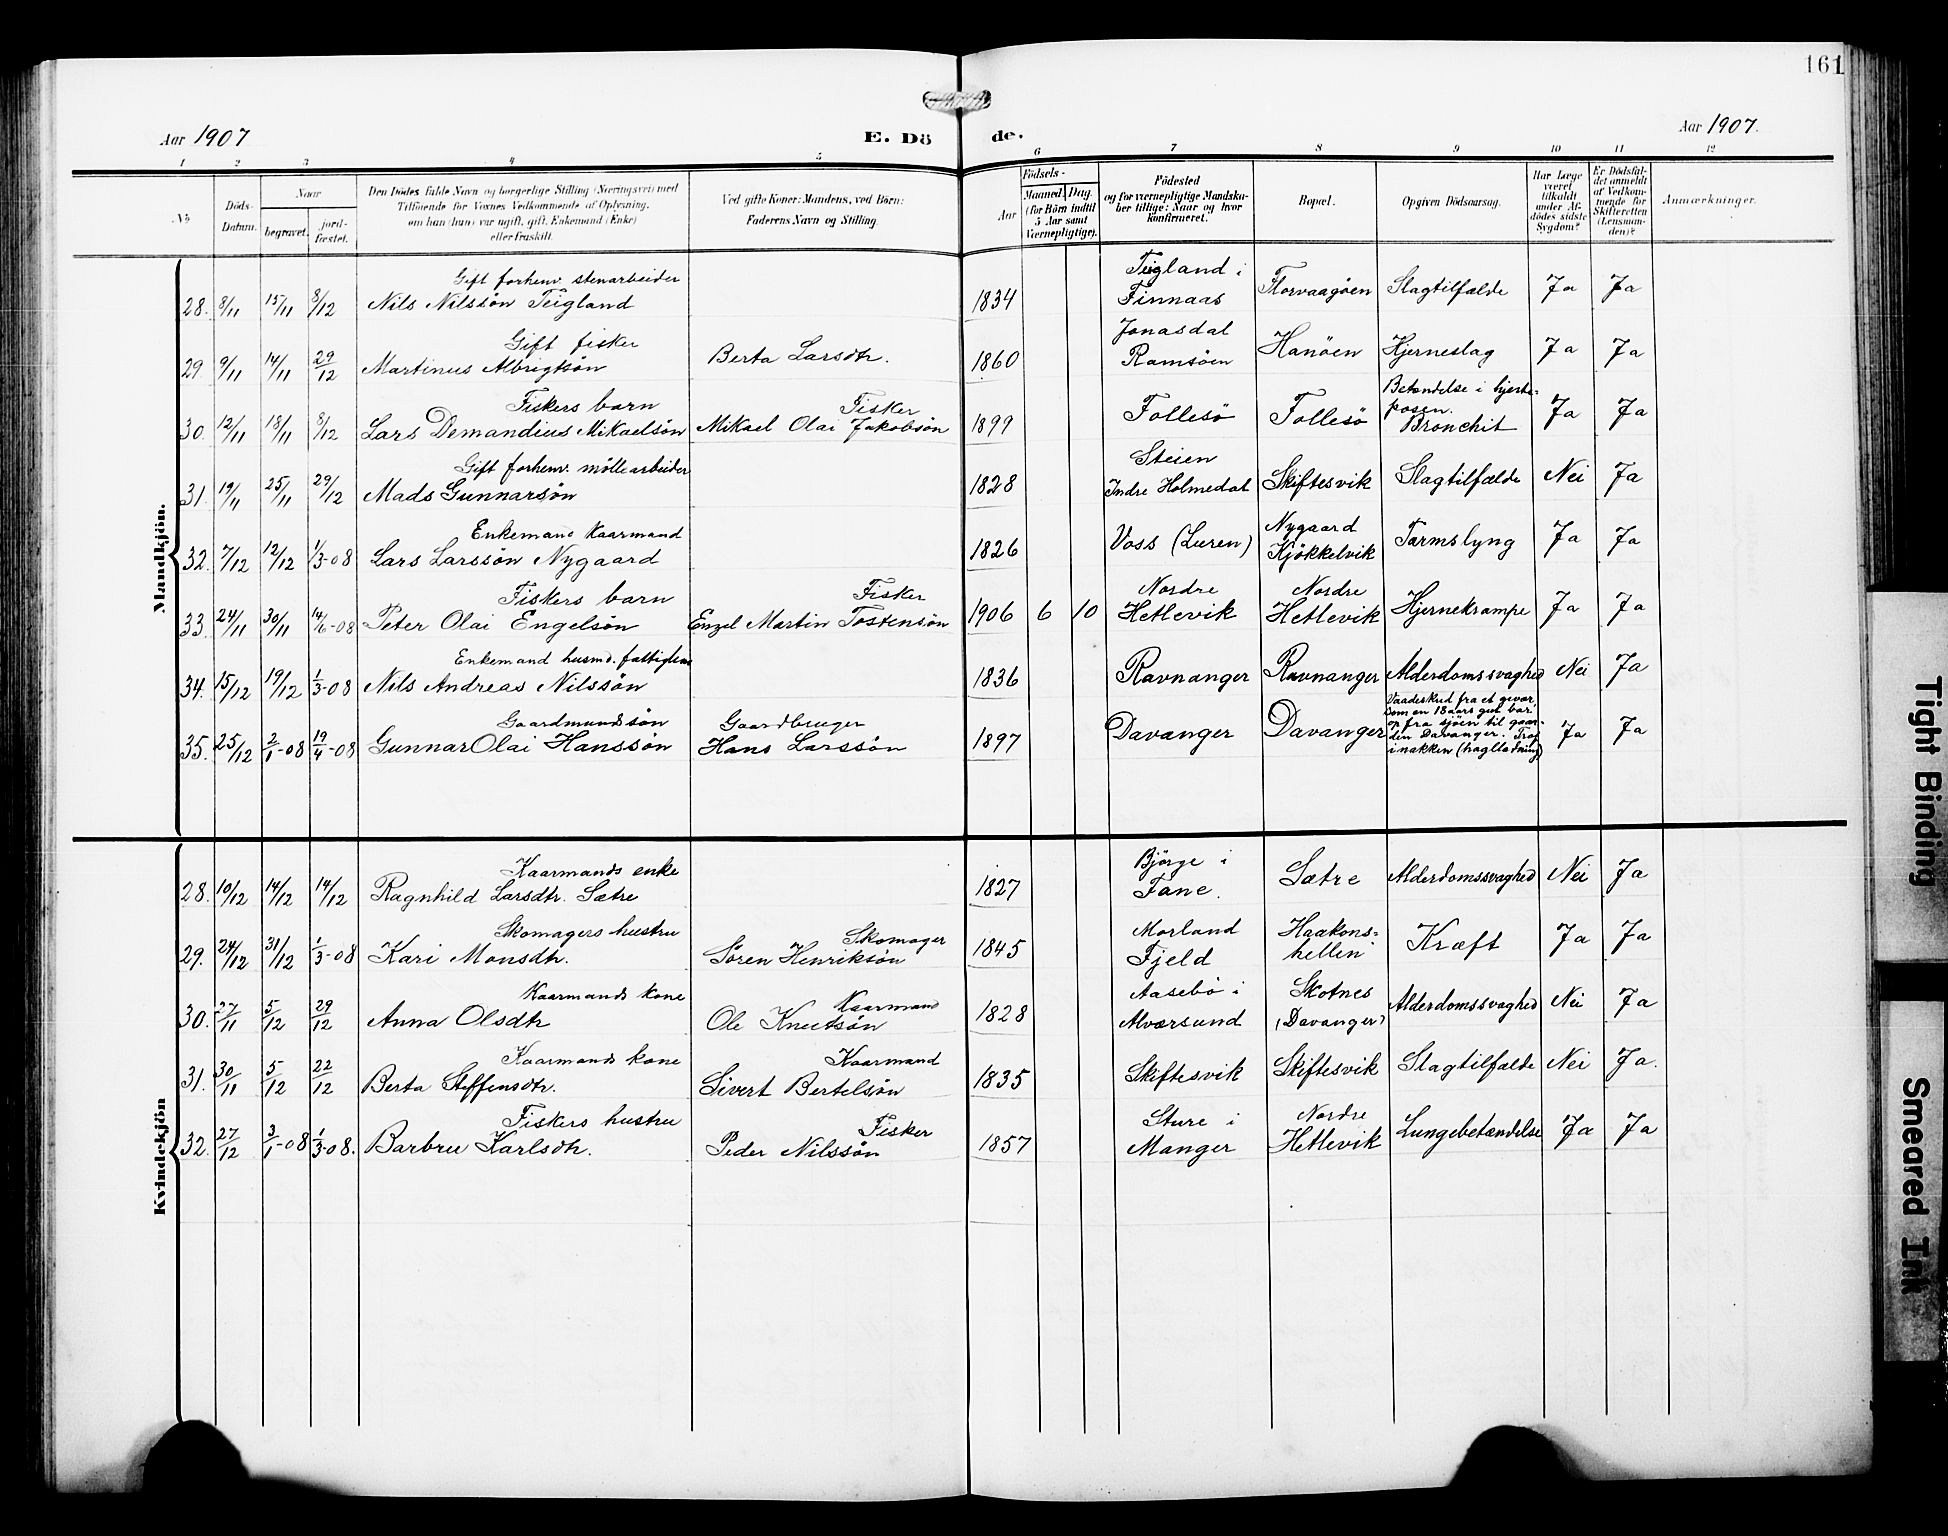 161
Aar 1907
E. Dö de.
Aar 1907.
1 2 3 4 5 6 7 8 9 10 11 12
№
Döds-
Datum.
Naar
begravet.
jord-
fæstet.
Den Dödes fulde Navn og borgerlige Stilling (Næringsvei) med
Tilföiende for Voxnes Vedkommende af Oplysning,
om han (hun) var ugift, gift, Enkemand (Enke)
eller fraskilt.
Ved gifte Koner: Mandens, ved Börn:
Faderens Navn og Stilling.
Födsels-
Aar
Maaned. Dag.
(for Börn indtil
5 Aar samt
Værnepligtige).
Födested
og for værnepligtige Mandska-
ber tillige: Naar og hvor
konfirmeret.
Bopæl.
Opgiven Dödsaarsag.
Har Læge
været
tilkaldt
under Af-
dödes sidste
Sygdom?
Er Dödsfal-
det anmeldt
af Vedkom-
mende for
Skifteretten
(Lensman-
den)?
Anmærkninger.
Mandkjön.
Gift forhenv. stenarbeider Teigland i
28. 8/11 15/11 8/12 Nils Nilssön Teigland 1834 Finnaas Florvaagöen Slagtilfælde Ja Ja
Gift fisker Jonasdal
29. 9/11 14/11 29/12 Martinus Albrigtsön Berta Larsdtr. 1860 Ramsöen Hanöen Hjerneslag Ja Ja
Fiskers barn Fisker Betændelse i hjerte-
posen.
30. 12/11 18/11 8/12 Lars Demandius Mikaelsön Mikael Olai Jakobsön 1899 Follesö Follesö Bronchit Ja Ja
Gift forhenv. möllearbeider Steien
31. 19/11 25/11 29/12 Mads Gunnarsön 1828 Indre Holmedal Skiftesvik Slagtilfælde Nei Ja
Enkemand Kaarmand Nygaard
32. 7/12 12/12 1/3-08 Lars Larssön Nygaard 1826 Voss (Luren) Kjökkelvik Tarmslyng Ja Ja
Fiskers barn Fisker Nordre Nordre
33. 24/11 30/11 14/6-08 Peter Olai Engelsön Engel Martin Tostensön 1906 6 10 Hetlevik Hetlevik Hjernekrampe Ja Ja
Enkemand husmd. fattiglem
34. 15/12 19/12 1/3-08 Nils Andreas Nilssön 1836 Ravnanger Ravnanger Alderdomssvaghed Nei Ja
Gaardmandssön Gaardbruger
35. 25/12 2/1-08 19/4-08 Gunnar Olai Hanssön Hans Larssön 1897 Davanger Davanger Ja Ja
Vaadeskud fra et gevær,
som en 18 aars gut bar
op fra sjöen til gaar-
den Davanger. Traf
i nakken (haglladning)
Kvindekjön
Kaarmands enke Björge i
28. 10/12 14/12 14/12 Ragnhild Larsdtr. Sætre 1827 Fane. Sætre Alderdomssvaghed Nei Ja
Skomagers hustru Skomager Morland Haakons-
29. 24/12 31/12 1/3-08 Kari Monsdtr. Sören Henriksön 1845 Fjeld hellen Kræft Ja Ja
Kaarmands kone Kaarmand Aasebö i Skotnes
30. 27/11 5/12 29/12 Anna Olsdtr Ole Knutsön 1828 Alværsund (Davanger) Alderdomssvaghed Nei Ja
Kaarmands kone Kaarmand
31. 30/11 5/12 22/12 Berta Steffensdtr. Sivert Bertelsön 1835 Skiftesvik Skiftesvik Slagtilfælde Nei Ja.
Fiskers hustru Fisker Sture i Nordre
32. 27/12 3/1-08 1/3-08. Barbru Karlsdtr. Peder Nilssön 1857 Manger Hetlevik Lungebetændelse Ja Ja
Tight Binding
Smeared Ink